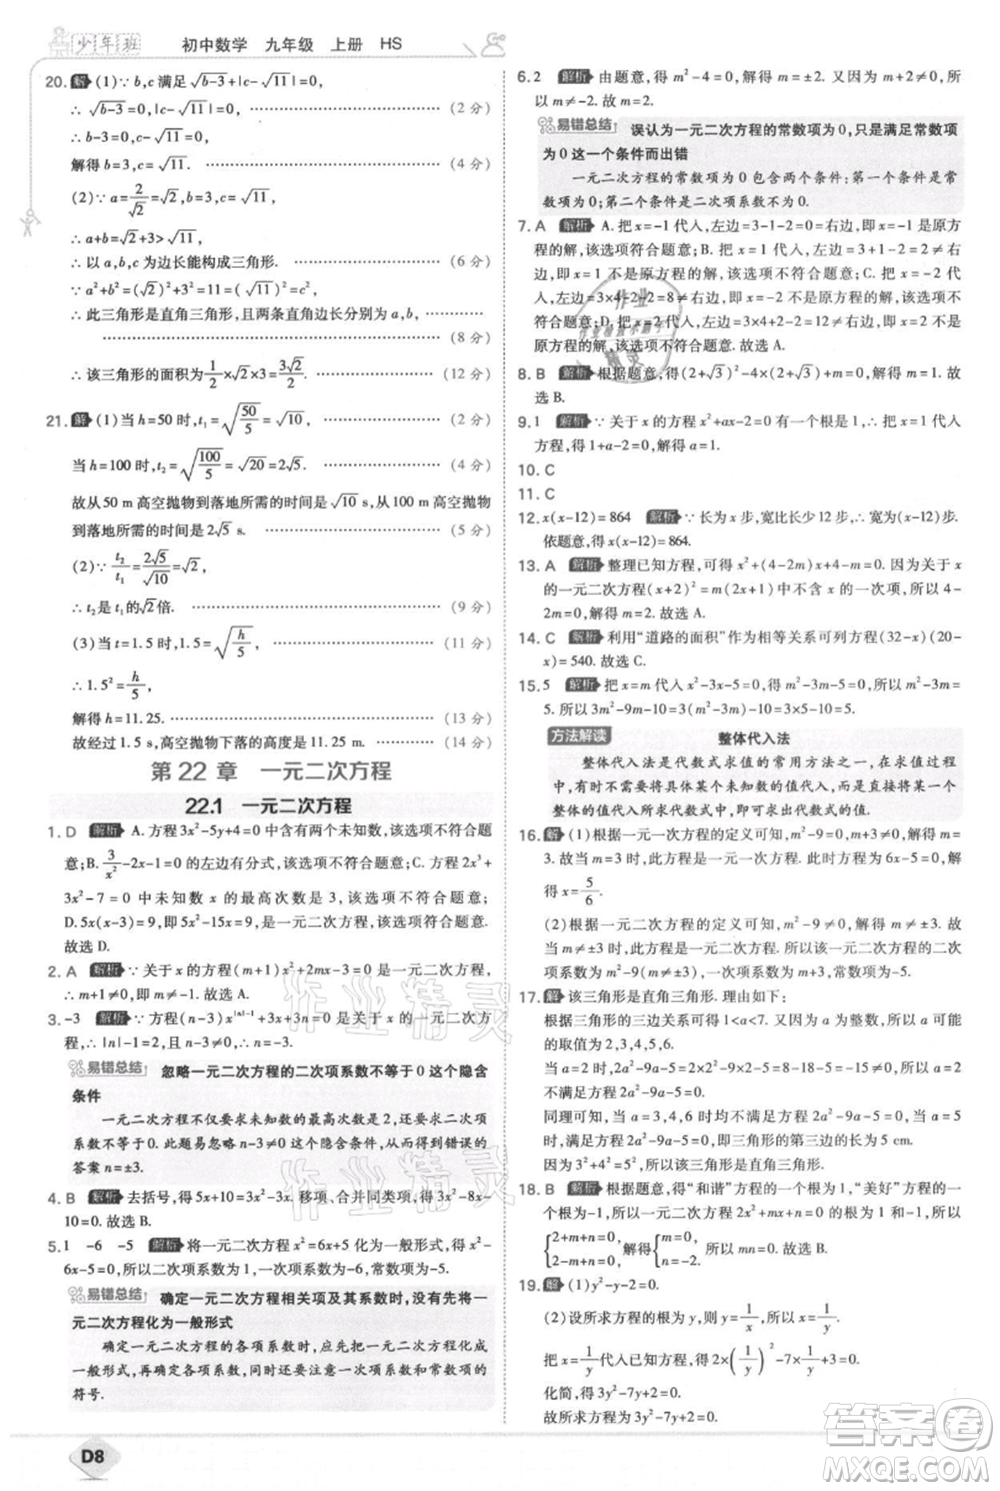 少年班 初中数学 九年级 上册 HS
20.解 (1)∵ b,c 满足 √(b-3)+|c-√11|=0,
∴ √(b-3)=0,|c-√11|=0, (2 分)
∴ b-3=0,c-√11=0,
解得 b=3,c=√11. (4 分)
(2)∵ a=2/√2=√2,
∴ a+b=√2+3>√11,
∴ 以 a,b,c 为边长能构成三角形. (6 分)
∵ a²+b²=(√2)²+3²=11=(√11)²=c²,
∴ 此三角形是直角三角形,且两条直角边长分别为 a,b,
(8 分)
∴ 该三角形的面积为 1/2×√2×3=3√2/2. (12 分)
21.解 (1)当 h=50 时,t₁=√(50/5)=√10, (2 分)
当 h=100 时,t₂=√(100/5)=√20=2√5. (4 分)
故从50 m 高空抛物到落地所需的时间是√10 s,从100 m高空抛物
到落地所需的时间是 2√5 s. (5 分)
(2)∵ t₂/t₁=2√5/√10=√2,
∴ t₂ 是 t₁的√2倍. (9 分)
(3)当 t=1.5 时,1.5=√(h/5), (11 分)
∴ 1.5²=h/5,
解得 h=11.25. (13 分)
故经过 1.5 s,高空抛物下落的高度是 11.25 m. (14 分)
第 22 章 一元二次方程
22.1 一元二次方程
1.D 解析 A.方程 3x²-5y+4=0 中含有两个未知数,该选项不符合题
意;B. 3/x²-2x-1=0 的左边有分式,该选项不符合题意;C. 方程 2x³+
3x²-7=0 中未知数 x 的最高次数是 3,该选项不符合题意;
D.5x(x-3)=9,即 5x²-15x=9,是一元二次方程,该选项符合题意.
故选 D.
2.A 解析 ∵ 关于 x 的方程(m+1)x²+2mx-3=0 是一元二次方程,
∴ m+1≠0,∴ m≠-1.故选 A.
3.-3 解析 ∵ 方程(n-3)x^(|n|-1)+3x+3n=0 是关于 x 的一元二次方
程,∴ |n|-1=2 且 n-3≠0,∴ n=-3.
易错总结 忽略一元二次方程的二次项系数不等于 0 这个隐含
条件
一元二次方程不仅要求未知数的最高次数是 2,还要求二次项
系数不等于 0.此题易忽略 n-3≠0 这个隐含条件,得到错误的
答案 n=±3.
4.B 解析 去括号,得 5x+10=3x²-3x.移项、合并同类项,得 3x²-8x-
10=0.故选 B.
5.1 -6 -5 解析 将一元二次方程 x²=6x+5 化为一般形式,得 x²-
6x-5=0,所以二次项系数为1,一次项系数为-6,常数项为-5.
易错总结 确定一元二次方程相关项及其系数时,没有先将一
元二次方程化为一般形式
确定一元二次方程的各项系数时,应先把一元二次方程化成
一般形式,再确定各项系数,同时还需注意一般形式中各项的
符号.
6.2 解析 由题意,得 m²-4=0,解得 m=±2.又因为 m+2≠0,所
以 m≠-2.故 m=2.
易错总结 误认为一元二次方程的常数项为0,只是满足常数项
为 0 这一个条件而出错
一元二次方程的常数项为 0 包含两个条件:第一个是常数
项为0;第二个是二次项系数不为0.
7.A 解析 A. 把 x=-1 代入,左边=3-1-2=0=右边,x=-1 是原方
程的解,该选项符合题意;B. 把 x=1 代入,左边=3+1-2=2≠0=右
边,x=1 不是原方程的解,该选项不符合题意;C. 把 x=2 代入,左
边=3×2²+2-2=12≠0=右边,x=2 不是原方程的解,该选项不符合
题意;D. 把 x=-2 代入,左边=3×(-2)²-2-2=8≠0=右边,x=-2 不是
原方程的解,该选项不符合题意.故选A.
8.B 解析 根据题意,得(2+√3)²-4×(2+√3)+m=0,解得 m=1.故
选B.
9.1 解析 ∵ 关于 x 的方程 x²+ax-2=0 有一个根是 1,∴ 把 x=1 代入
方程,得 1+a-2=0,解得 a=1.
10. C
11. C
12. x(x-12)=864 解析 ∵ 长为 x 步,宽比长少 12 步,∴ 宽为(x-12)步.
依题意,得 x(x-12)=864.
13. A 解析 整理已知方程,可得 x²+(4-2m)x-4=0.∵ 关于 x
的一元二次方程(x+2)²=2mx+8 不含 x 的一次项,所以 4-
2m=0,解得 m=2.故选 A.
14. C 解析 利用“道路的面积”作为相等关系可列方程(32-x)(20-
x)=540.故选 C.
15. 5 解析 把 x=m 代入 x²-3x-5=0,得 m²-3m-5=0,所以 m²-3m=
5.所以 3m²-9m-10=3(m²-3m)-10=3×5-10=5.
方法解读 整体代入法
整体代入法是代数式求值的常用方法之一.在求值过程中,
有时无法或不需要求出单个未知数的值,而是直接将某一个
整体的值代入所求代数式中,即可求出代数式的值.
16. 解 (1)根据一元一次方程的定义可知,m²-9=0,解得 m=±
3.故当 m=3 时,此方程是一元一次方程.此时方程为 6x-5=0,解
得 x=5/6.
(2)根据一元二次方程的定义可知,m²-9≠0,解得 m≠±3.故
当 m≠±3 时,此方程是一元二次方程.所以,此一元二次方程的二次
项系数为 m²-9,一次项系数为 m+3,常数项为-5.
17. 解 该三角形是直角三角形.理由如下:
根据三角形的三边关系可知 1<a<7.又因为 a 为整数,所以 a 可能
的取值为 2,3,4,5,6.
当 a=2 时,2a²-9a-5=2×2²-9×2-5=-15≠0,所以当 a=2 时
不满足方程 2a²-9a-5=0.
同理可知,当 a=3,4,6 时均不满足方程 2a²-9a-5=0,当 a=5
时满足方程 2a²-9a-5=0,即三角形的第三边长为 5 cm.
因为 3²+4²=5²,所以该三角形为直角三角形.
18. B 解析 根据题意,得“和谐”方程的一个根为1,“美好”方程的一
个根为-1,所以一元二次方程 2x²+mx+n=0 的根为 1 和-1,所以
{2+m+n=0, 2-m+n=0, 解得{m=0, n=-2, 所以 mn=0.故选 B.
19. 解 (1)y²-y-2=0.
(2)设所求方程的根为 y,则 y=1/x,于是 x=1/y.
把 x=1/y代入已知方程,得 2×(1/y)²-7×1/y+3=0.
化简,得 3y²-7y+2=0.
故所求方程为 3y²-7y+2=0.
D8
作业精灵
作业精灵
答案圈
MXQE.COM